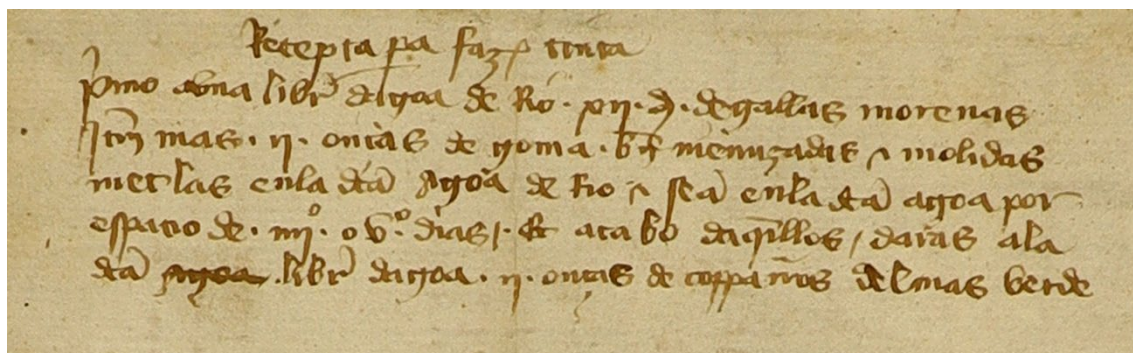 Recepta pa fazer tinta
primo abna libr dagoa de Rio · xii · d · de gallas morenas
Itm mas · ii · onças de goma · bn menuzadas e molidas
metlas enla dta Agoa de Rio e sea enla dta agoa por
espacio de · iiii° · o v° · dias / · Et acabo daqllos / daras ala
dta agoa · libr dagoa · ii · onças de copparros del mas verde